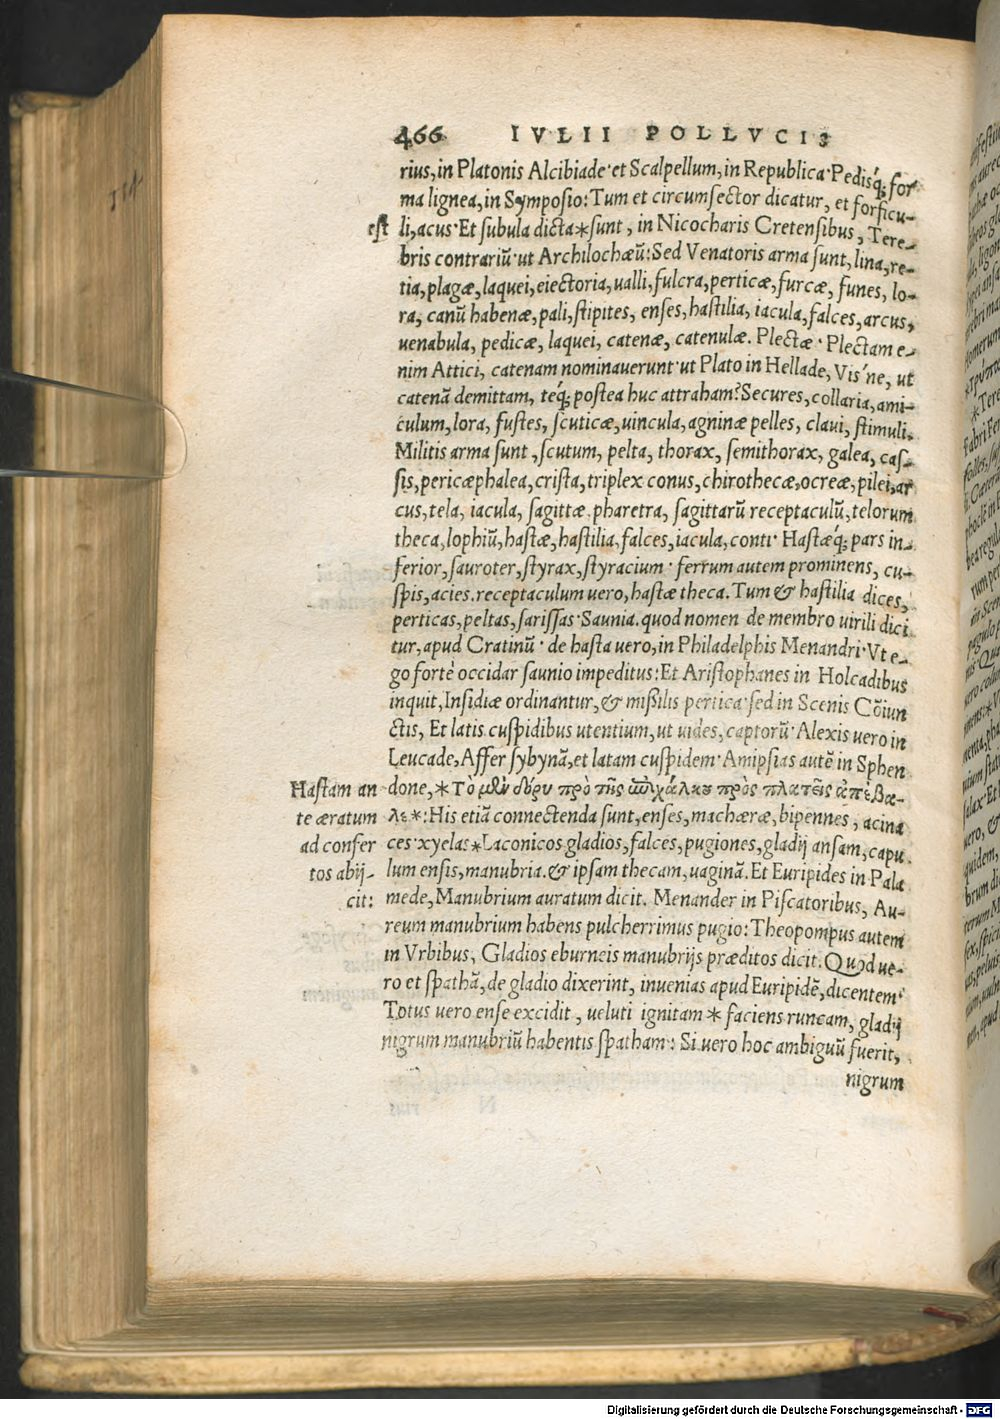 114
466 IVLII POLLVCIS
rius, in Platonis Alcibiade·et Scalpellum, in Republica·Pedisq́; for
ma lignea, in Symposio: Tum et circumsector dicatur, et forficu-
est li, acus·Et subula dicta*sunt, in Nicocharis Cretensibus, Tere-
bris contrariũ·ut Archilochæũ: Sed Venatoris arma sunt, lina, re-
tia, plagæ, laquei, eiectoria, ualli, fulcra, perticæ, furcæ, funes, lo-
ra, canũ habenæ, pali, stipites, enses, hastilia, iacula, falces, arcus,
uenabula, pedicæ, laquei, catenæ, catenulæ. Plectæ· Plectam e-
nim Attici, catenam nominauerunt·ut Plato in Hellade, Vis'ne, ut
catenã demittam, teq́; postea huc attraham? Secures, collaria, ami-
culum, lora, fustes, scuticæ, uincula, agninæ pelles, claui, stimuli.
Militis arma sunt, scutum, pelta, thorax, semithorax, galea, cas-
sis, pericæphalea, crista, triplex conus, chirothecæ, ocreæ, pilei, ar
cus, tela, iacula, sagittæ. pharetra, sagittarũ receptaculũ, telorum
theca, lophiũ, hastæ, hastilia, falces, iacula, conti· Hastæq́; pars in-
ferior, sauroter, styrax, styracium· ferrum autem prominens, cu-
spis, acies. receptaculum uero, hastæ theca. Tum & hastilia dices,
perticas, peltas, sarissas·Saunia. quod nomen de membro uirili dici
tur, apud Cratinũ· de hasta uero, in Philadelphis Menandri·Vt e-
go fortè occidar saunio impeditus: Et Aristophanes in Holcadibus
inquit, Insidiæ ordinantur, & missilis pertica·sed in Scenis Cõiun
ctis, Et latis cuspidibus utentium, ut uides, captorũ·Alexis uero in
Leucade, Affer sybynã, et latam cuspidem·Amipsias autẽ in Sphen
Hastam an done, *Τὸ μὲν δόρυ πρὸ τῆς ἐπιχάλκου πρὸς πλατεῖς ἀπέβα-
te æratum λε*: His etiã connectenda sunt, enses, machæræ, bipennes, acina
ad confer ces·xyelas*Laconicos gladios, falces, pugiones, gladij ansam, capu
tos abij- lum ensis, manubria. & ipsam thecam, uaginã. Et Euripides in Pala
cit: mede, Manubrium auratum dicit. Menander in Piscatoribus, Au-
reum manubrium habens pulcherrimus pugio: Theopompus autem
in Vrbibus, Gladios eburneis manubrijs præditos dicit. Quod ue-
ro et spathã, de gladio dixerint, inuenias apud Euripidẽ, dicentem·
Totus uero ense excidit, ueluti ignitam * faciens runcam, gladij
nigrum manubriũ habentis spatham: Si uero hoc ambiguũ fuerit,
nigrum
Digitalisierung gefördert durch die Deutsche Forschungsgemeinschaft - DFG